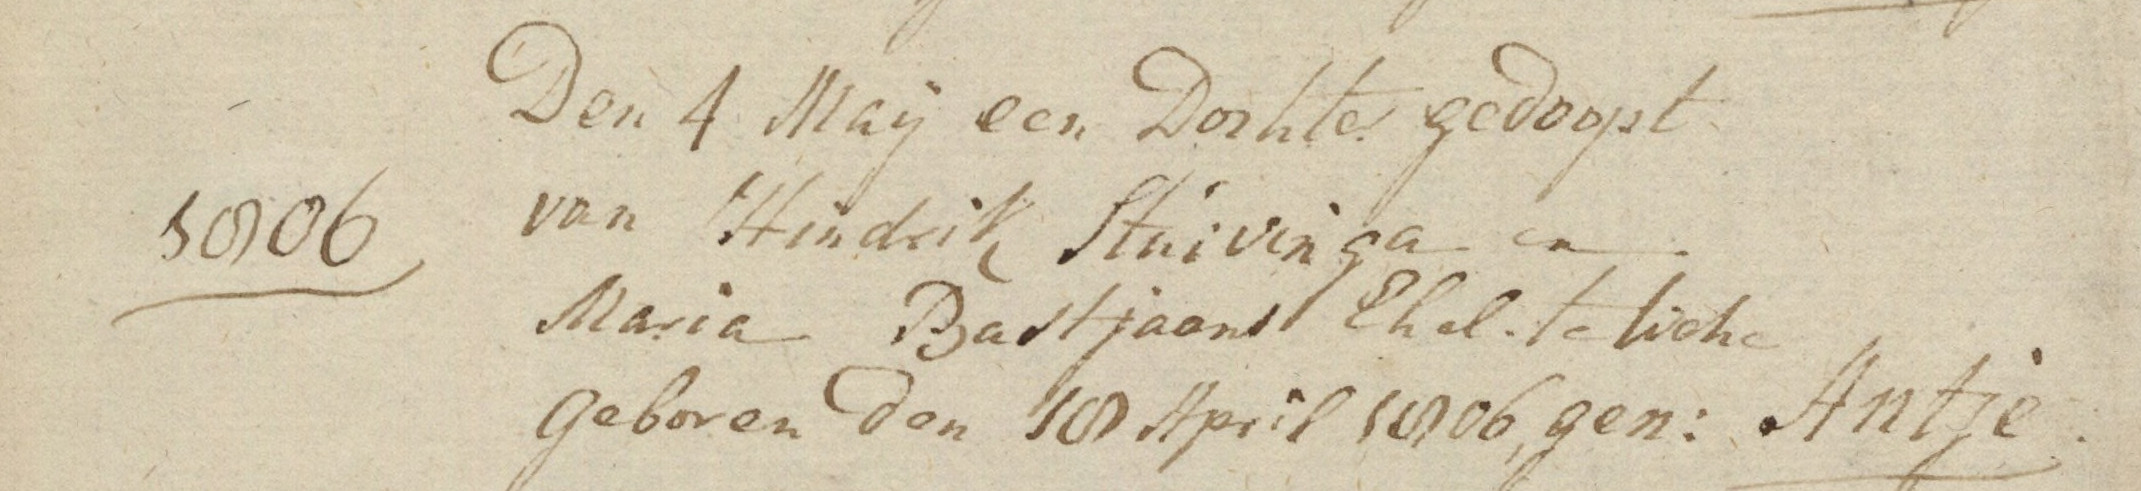 Den 4 Maÿ een Dochter gedoopt
van Hindrik Stuivinga en
1806
Maria Bastjaans Ehel. te Wehe
geboren den 18 April 1806, gen: Antje.